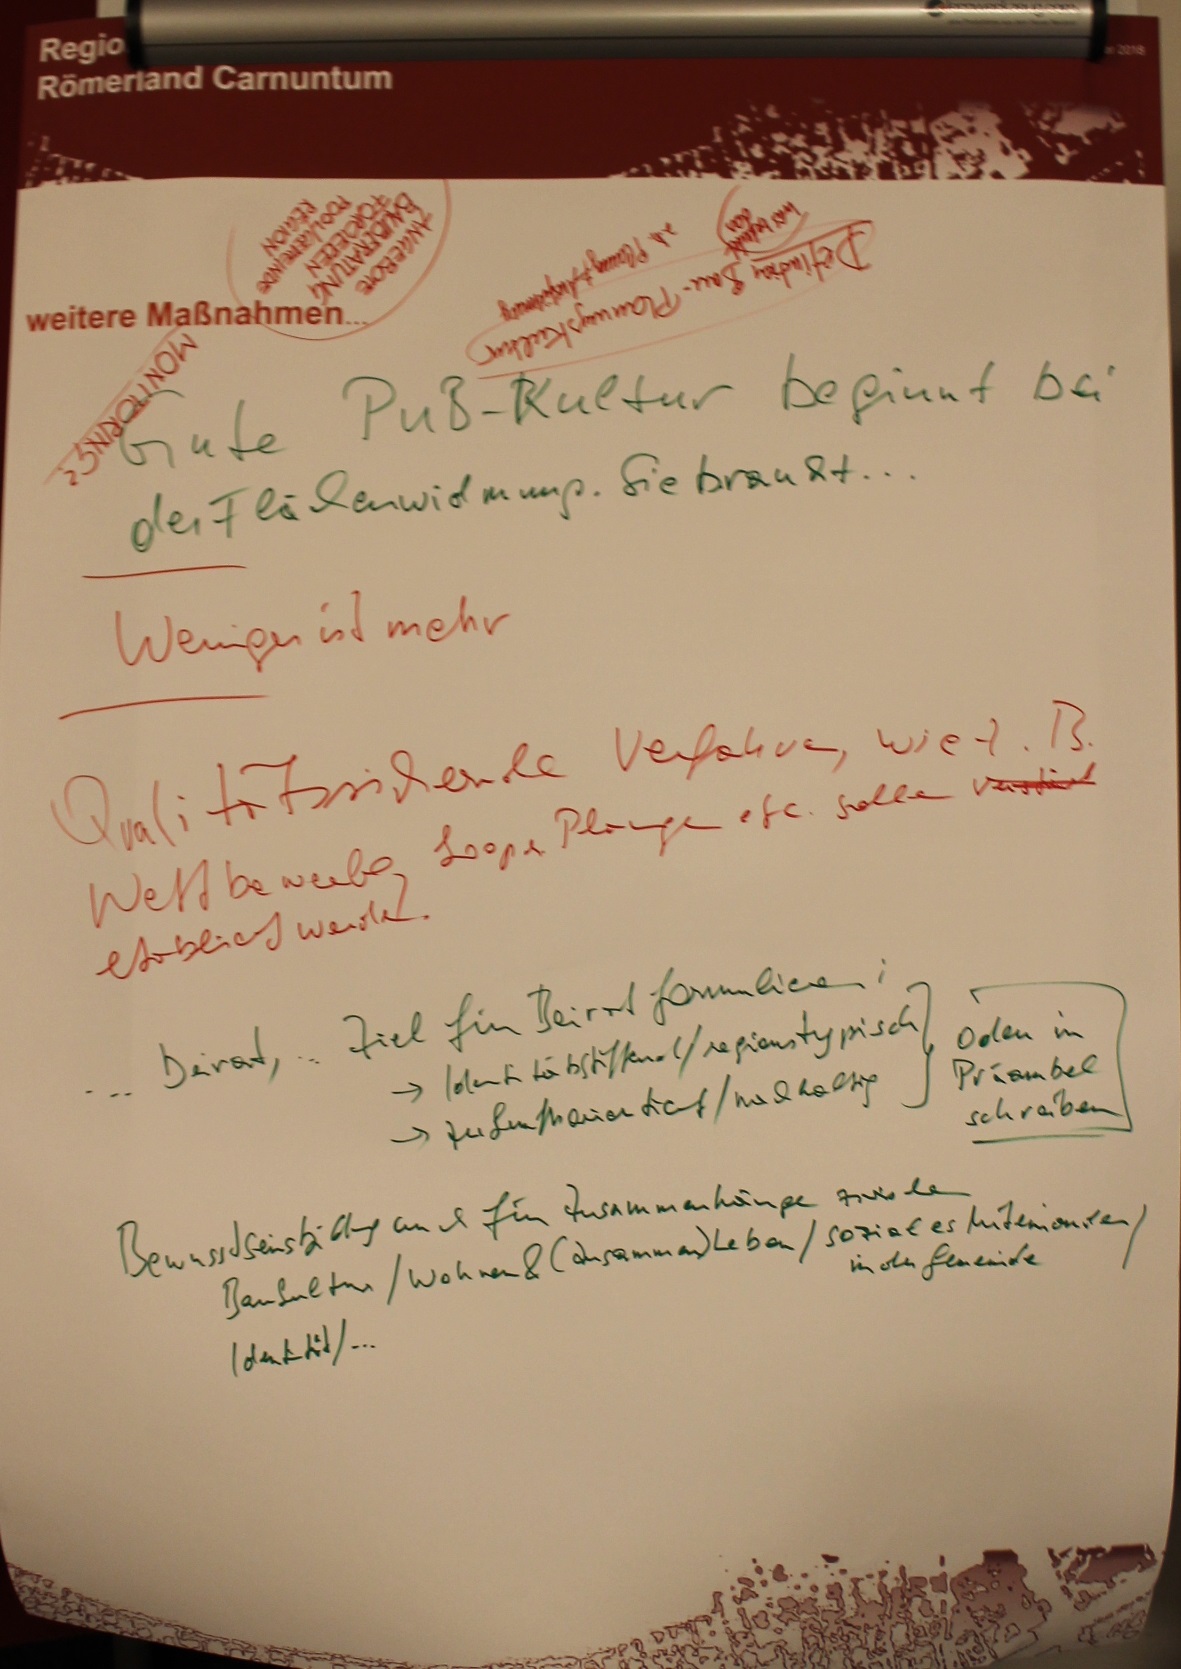 Regio
Römerland Carnuntum
2018
ANGEBOTE
BAUBERATUNG
FÖRDERN
POOL
REGION
weitere Maßnahmen...
Definition Bau- Planungskultur
was bedeutet
das
z.B. Planung + Ausführung
MONITORING?
Gute PuB-Kultur beginnt bei
der Flächenwidmung. Sie braucht...
Weniger ist mehr
Qualitätssichernde Verfahren, wie z.B.
Wettbewerbe, Planungen etc. sollen
etabliert werden.
... Beirat, ... Ziel für Beirat formulieren:
→ Identitätsstiftend/regionstypisch
→ zukunftsorientiert/nachhaltig
Oder in
Präambel
schreiben
Bewusstseinsbildung auch für Zusammenhänge zwischen
Baukultur/Wohnen&(Zusammen)Leben/soziales Miteinander/
in der Gemeinde
Identität/...